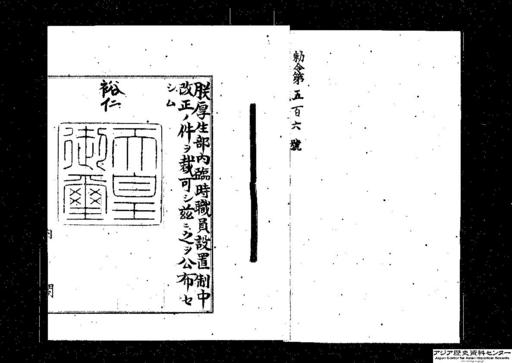 勅令第五百六號
朕厚生部內臨時職員設置制中
改正ノ件ヲ裁可シ茲ニ之ヲ公布セ
シム
裕仁
天皇
御璽
內閣
アジア歴史資料センター
Japan Center for Asian Historical Records